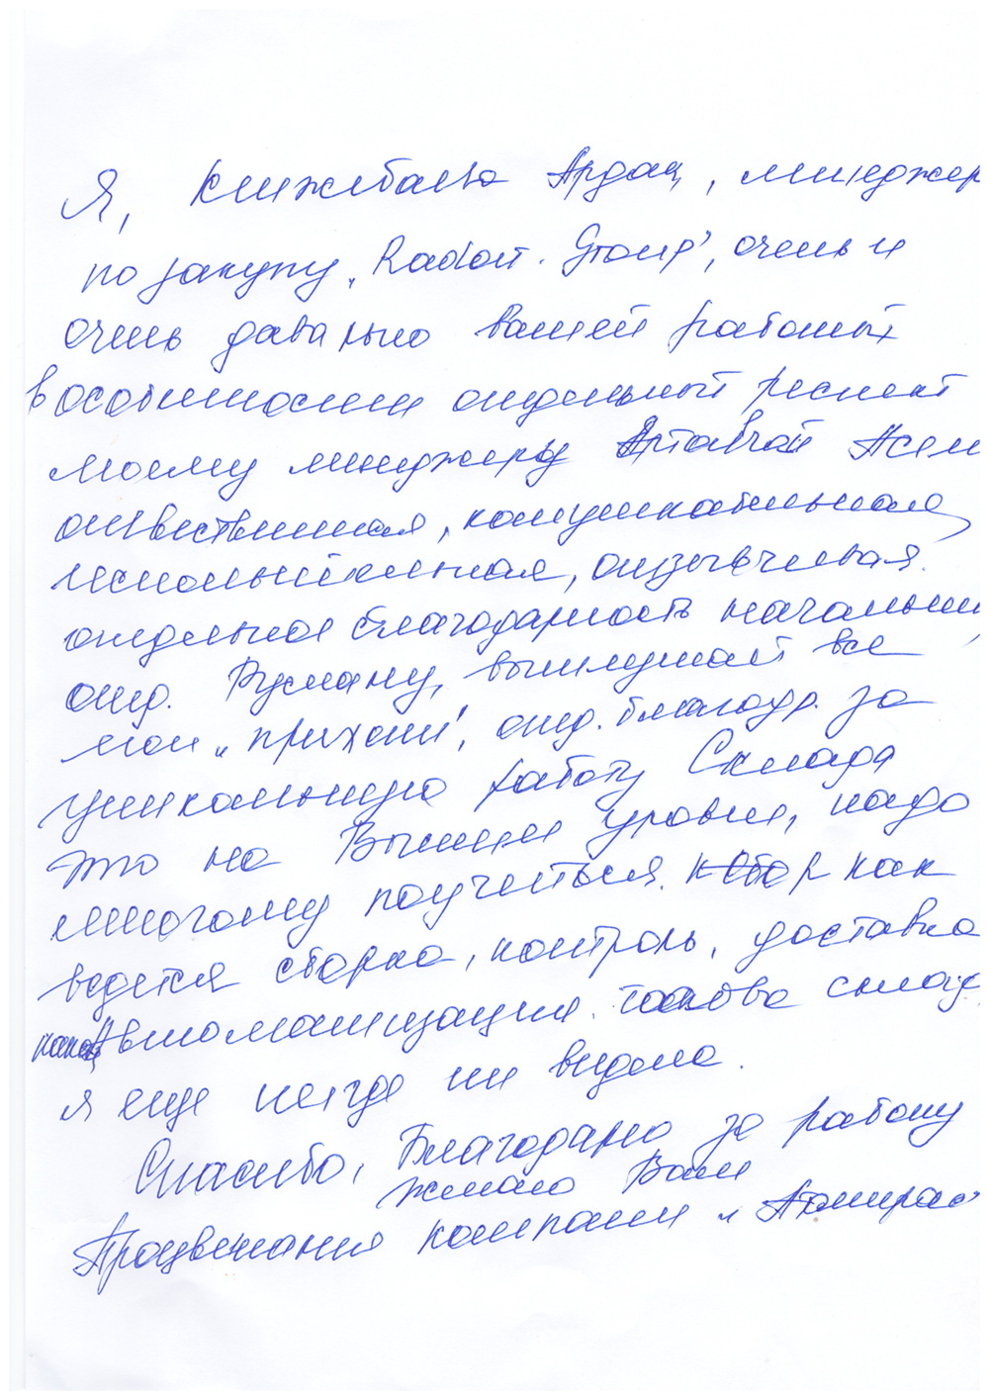 Я, Книжбаева Ардак, менеджер
по закупу „Radoit. Group", очень и
очень давально вашей работых
в особенности отдельный респект
моему менеджеру Асем
ответственная, комуникабельная,
исполнительная, отзывчивая.
отдельное благодарность начальни
отд. Русману, выслушает все
мои „прихоти", отд. благодар. за
уникальную работу Склада
это на Вышем уровни, надо
многому поучиться. как
ведется сборка, контроль, доставка
Автоматизации. такова склад
я еще негде ни видела.
Спасибо, Благодарю за работу
желаю Вам
Процветания компании „